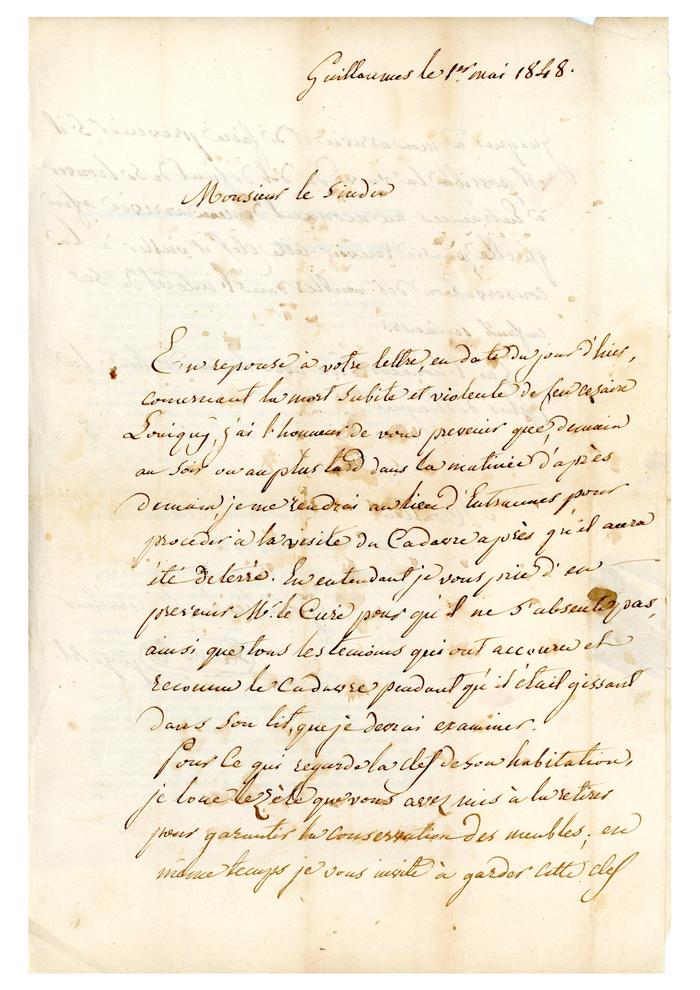 Guillaumes le 1er mai 1848.
Monsieur le Sindic
En reponse à votre lettre, en date du jour d'hier,
concernant la mort subite et violente de feu cesaire
j'ai l'honneur de vous prevenir que, demain
au soir ou au plus tard dans la matinée d'après
demain, je me rendrai au lieu d'Entraunes pour
proceder à la visite du Cadavre après qu'il aura
été deterré. En entendant je vous prie d'en
prevenir Mr. le Curé pour qu'il ne s'absente pas,
ainsi que tous les temoins qui ont accouru et
reconnu le Cadavre pendant qu'il était gissant
dans son lit, que je devrai examiner.
Pour ce qui regarde la clef de son habitation,
je loue le zèle que vous avez mis à la retirer
pour garantir la conservation des meubles; en
même temps je vous invite à garder cette clef